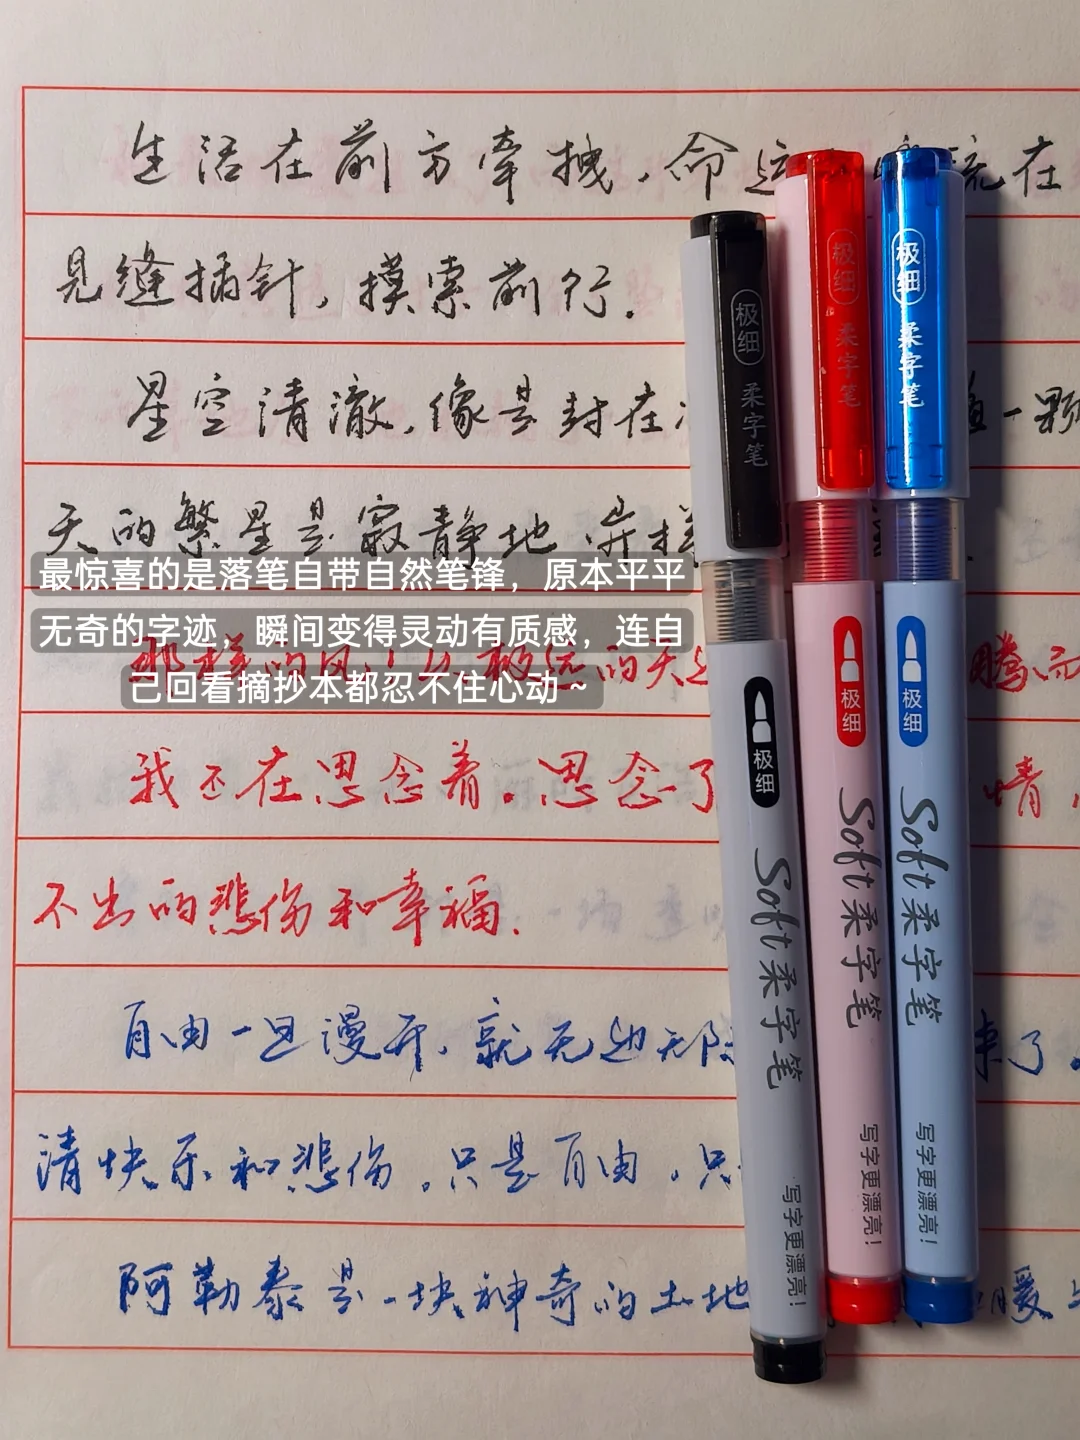 生活在前方牵拽，命运
流在
见缝插针，摸索前行．
星空清澈，像是封在
一颗
天的繁星是寂静地
最惊喜的是落笔自带自然笔锋，原本平平
无奇的字迹，瞬间变得灵动有质感，连自
己回看摘抄本都忍不住心动～
那样的风
极远的天
腾而
我还在思念着。思念了
情，
不出的悲伤和幸福．
自由一旦漫开，就无边无际
来了。
清快乐和悲伤。只是自由。只
阿勒泰是一块神奇的土地
暖
极细
柔字笔
极细
Soft柔字笔
写字更漂亮！
极细
柔字笔
极细
Soft柔字笔
写字更漂亮！
极细
柔字笔
极细
Soft柔字笔
写字更漂亮！